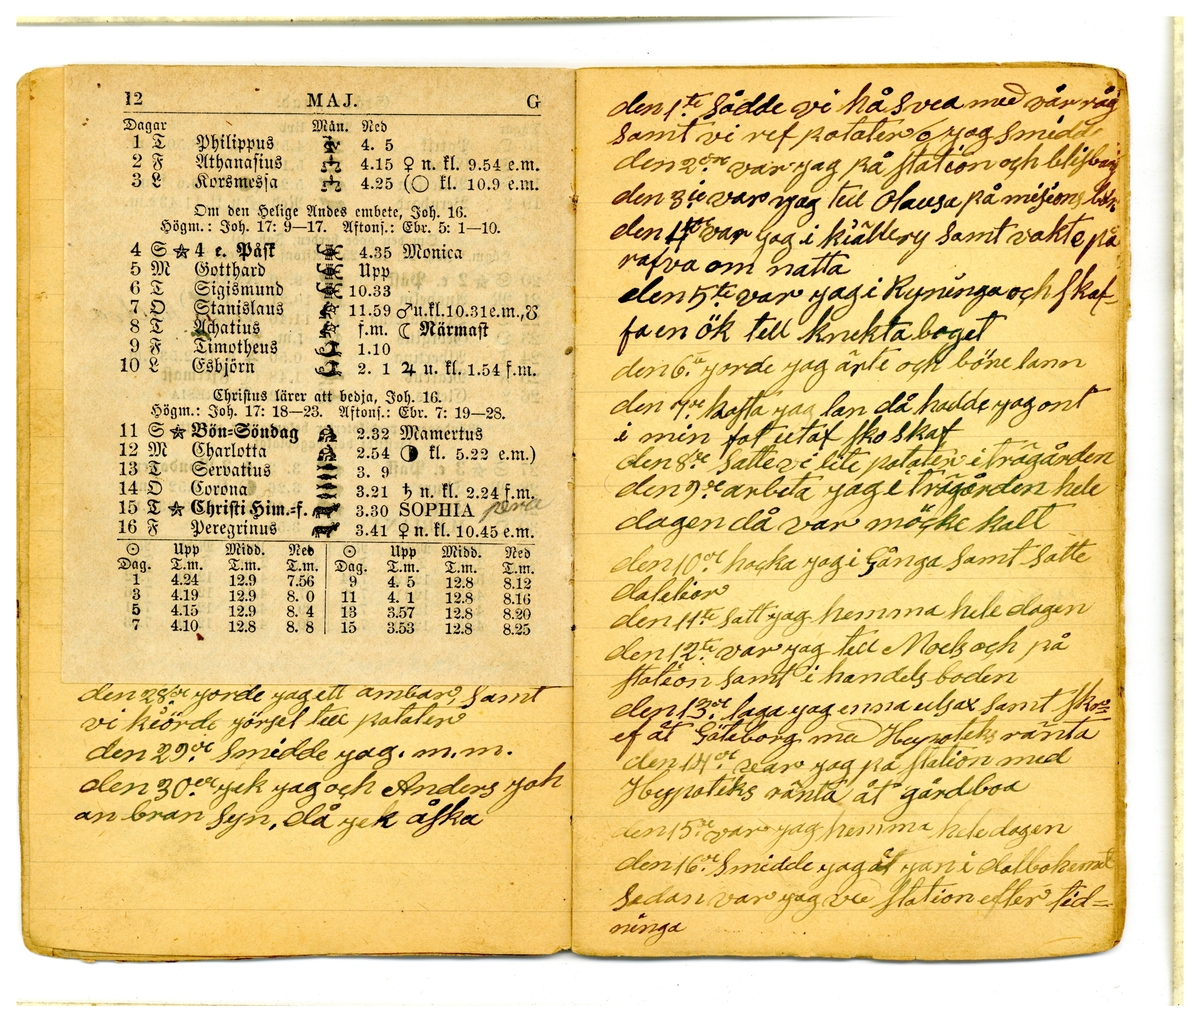 12 MAJ. G
Dagar Mån. Ned
1 T Philippus 4. 5
2 F Athanasius 4.15 ♀ n. kl. 9.54 e.m.
3 L Korsmessa 4.25 (○ kl. 10.9 e.m.
Om den Helige Andes embete, Joh. 16.
Högm.: Joh. 17: 9—17. Aftons.: Ebr. 5: 1—10.
4 S ☆ 4 e. Påsk 4.35 Monica
5 M Gotthard Upp
6 T Sigismund 10.33
7 O Stanislaus 11.59 ♂ n.kl.10.31e.m.,☋
8 T Achatius f.m. ☾ Närmast
9 F Timotheus 1.10
10 L Esbjörn 2. 1 ♃ n. kl. 1.54 f.m.
Christus lärer att bedja, Joh. 16.
Högm.: Joh. 17: 18—23. Aftons.: Ebr. 7: 19—28.
11 S ☆ Bön-Söndag 2.32 Mamertus
12 M Charlotta 2.54 ◑ kl. 5.22 e.m.)
13 T Servatius 3. 9
14 O Corona 3.21 ♄ n. kl. 2.24 f.m.
15 T ☆ Christi Him.-f. 3.30 SOPHIA
16 F Peregrinus 3.41 ♀ n. kl. 10.45 e.m.
☉ Upp Midd. Ned ☉ Upp Midd. Ned
Dag. T.m. T.m. T.m. Dag. T.m. T.m. T.m.
1 4.24 12.9 7.56 9 4. 5 12.8 8.12
3 4.19 12.9 8. 0 11 4. 1 12.8 8.16
5 4.15 12.9 8. 4 13 3.57 12.8 8.20
7 4.10 12.8 8. 8 15 3.53 12.8 8.25
den 28de yorde yag ett ambar, samt
vi kiörde yörsel till potater
den 29de smidde yag. m.m.
den 30de yek yag och Anders yoh
an bran syn, då yek åska
den 1te sådde vi hå svea med vår råg
samt vi ref potater o yag smidde
den 2dre var yag på station och
den 3ie var yag till Olausa på misions
den 4de var yag i kiällery samt vakte på
räfva om natta
den 5te var yag i Ryninga och skaf-
fa en ök till knekta boget
den 6te yorde yag ärte och böne lann
den 7de kasta yag lan då hadde yag ont
i min fot utaf sko skaf
den 8de satte vi lite potater i trägården
den 9de arbeta yag i trägården hele
dagen då var möcke kalt
den 10de hacka yag i Gånga samt satte
dalelior
den 11te satt yag hemma hele dagen
den 12te var yag till Moels och på
station samt i handels boden
den 13de laga yag enna ulsax samt skre
ef åt Göteborg me Heypoteks ränta
den 14de var yag på station med
Heypoteks ränta åt gårdboa
den 15de var yag hemma hele dagen
den 16de smidde yag åt yan i dalbo
sedan var yag ve station efter tid=
ninga